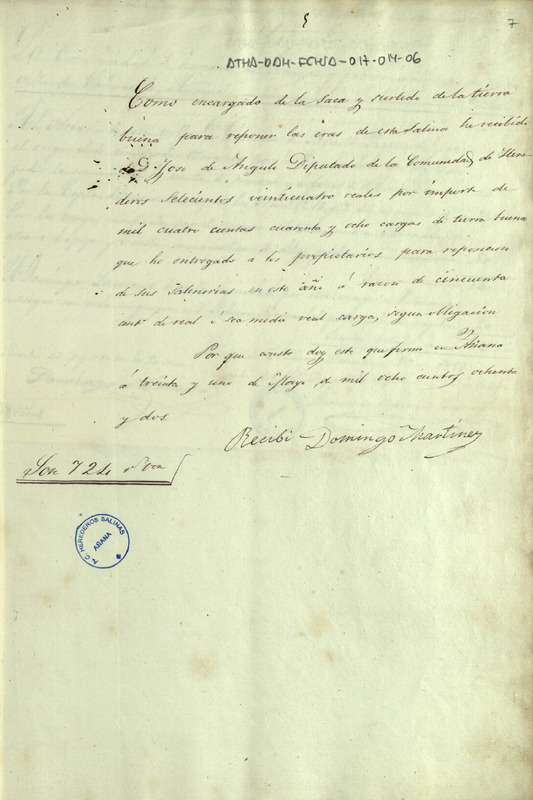 7
ATHA-DAH-FCHSA-017-014-06
Como encargado de la saca y surtido de la tierra
buena para reponer las eras de esta Salina he recibido
de D. Jose de Angulo Diputado de la Comunidad de Here-
deros Setecientos veinticuatro reales por importe de
mil cuatro cientas cuarenta y ocho cargas de tierra buena
que he entregado á los propietarios para reposicion
de sus Salinerias en este año á razon de cincuenta
de real ó sea medio real carga, segun obligacion
Por que conste doy este que firmo en Añana
á treinta y uno de Mayo de mil ocho cientos ochenta
y dos
Recibi - Domingo Martinez
Son 724
HEREDEROS SALINAS
AÑANA